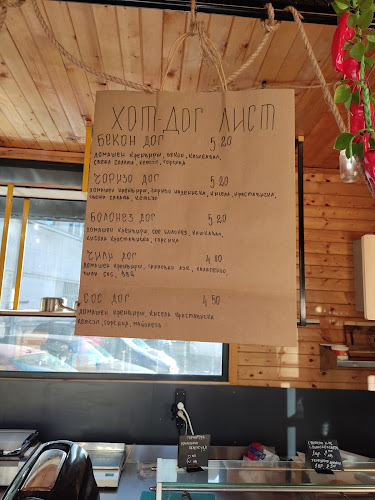 ХОТ-ДОГ ЛИСТ
БЕКОН ДОГ 5,20
ДОМАШЕН КРЕНВИРШ, БЕКОН, КАШКАВАЛ,
СВЕЖА САЛАТА, КЕТЧУП, ГОРЧИЦА
ЧОРИЗО ДОГ 5,20
ДОМАШЕН КРЕНВИРШ, ЧОРИЗО НАДЕНИЧКА, КИСЕЛА КРАСТАВИЧКА,
СВЕЖА САЛАТА, КЕТЧУП
БОЛОНЕЗ ДОГ 5,20
ДОМАШЕН КРЕНВИРШ, СОС БОЛОНЕЗ, КАШКАВАЛ,
КИСЕЛА КРАСТАВИЧКА, ГОРЧИЦА
ЧИЛИ ДОГ
ДОМАШЕН КРЕНВИРШ, ЛУК, ХАЛАПЕНЬО,
ЧИЛИ СОС,
СОС ДОГ 4,50
ДОМАШЕН КРЕНВИРШ, КИСЕЛА КРАСТАВИЧКА
КЕТЧУП, ГОРЧИЦА, МАЙОНЕЗА